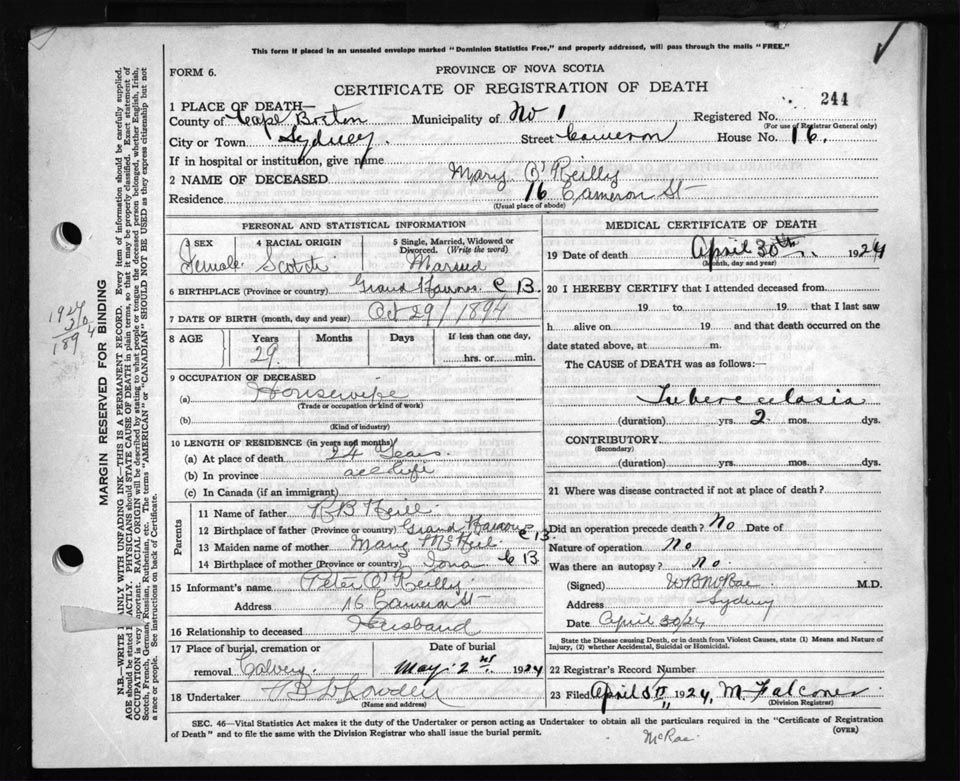 This form if placed in an unsealed envelope marked "Dominion Statistics Free," and properly addressed, will pass through the mails "FREE."
FORM 6.
PROVINCE OF NOVA SCOTIA
CERTIFICATE OF REGISTRATION OF DEATH
244
1 PLACE OF DEATH—
County of Cape Breton Municipality of No 1 Registered No.
(For use of Registrar General only)
City or Town Sydney Street Cameron House No. 16.
If in hospital or institution, give name
2 NAME OF DECEASED Mary O'Reilly
Residence 16 Cameron St
(Usual place of abode)
PERSONAL AND STATISTICAL INFORMATION
3 SEX 4 RACIAL ORIGIN 5 Single, Married, Widowed or Divorced. (Write the word)
Female Scotch Married
6 BIRTHPLACE (Province or country) Grand Narrows C B.
7 DATE OF BIRTH (month, day and year) Oct 29/1894
8 AGE Years Months Days If less than one day,
29 hrs. or min.
9 OCCUPATION OF DECEASED
(a) Housewife
(Trade or occupation or kind of work)
(b)
(Kind of industry)
10 LENGTH OF RESIDENCE (in years and months)
(a) At place of death 24 Years
(b) In province all life
(c) In Canada (if an immigrant)
Parents
11 Name of father
12 Birthplace of father (Province or country) Grand Narrows C B.
13 Maiden name of mother Mary McNeil
14 Birthplace of mother (Province or country) Iona C B
15 Informant's name Peter O'Reilly
Address 16 Cameron St
16 Relationship to deceased Husband
17 Place of burial, cremation or removal Calvery Date of burial May 2nd 1924
18 Undertaker
(Name and address)
MEDICAL CERTIFICATE OF DEATH
19 Date of death April 30th 1924
(Month, day and year)
20 I HEREBY CERTIFY that I attended deceased from
19 to 19 that I last saw
h alive on 19 and that death occurred on the
date stated above, at m.
The CAUSE of DEATH was as follows:—
Tuberculasia
(duration) yrs. 2 mos. dys.
CONTRIBUTORY
(Secondary)
(duration) yrs. mos. dys.
21 Where was disease contracted if not at place of death?
Did an operation precede death? No Date of
Nature of operation No
Was there an autopsy? No
(Signed) W B McRae M.D.
Address Sydney
Date April 30/24
State the Disease causing Death, or in death from Violent Causes, state (1) Means and Nature of Injury, (2) whether Accidental, Suicidal or Homicidal.
22 Registrar's Record Number
23 Filed April 1924,
(Division Registrar)
SEC. 46—Vital Statistics Act makes it the duty of the Undertaker or person acting as Undertaker to obtain all the particulars required in the "Certificate of Registration
of Death" and to file the same with the Division Registrar who shall issue the burial permit.
(OVER)
McRae
MARGIN RESERVED FOR BINDING
1924
30
1894
N.B.—WRITE PLAINLY WITH UNFADING INK—THIS IS A PERMANENT RECORD. Every item of information should be carefully supplied.
AGE should be stated EXACTLY. PHYSICIANS should STATE CAUSE OF DEATH in plain terms, so that it may be properly classified. Exact statement of
OCCUPATION is very important. RACIAL ORIGIN will be described by stating to what people or tongue the deceased person belonged, whether English, Irish,
Scotch, French, German, Russian, Ruthenian, etc. The terms "AMERICAN" or "CANADIAN" SHOULD NOT BE USED as they express citizenship but not
a race or people. See instructions on back of Certificate.